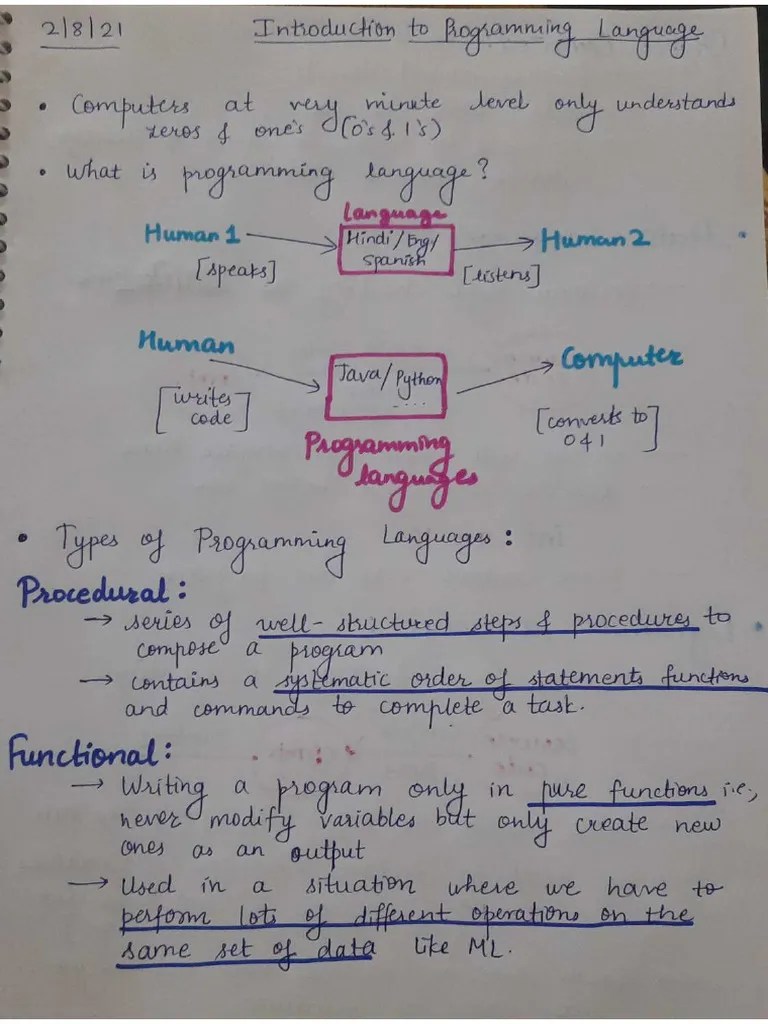 2/8/21 Introduction to Programming Language
• Computers at very minute level only understands
zeros & one's (0's & 1's)
• What is programming language?
Language
Human 1 → Hindi/Eng/ → Human 2
Spanish
[speaks] [listens]
Human Computer
Java/Python
....
[writes
code]
[converts to
0 & 1]
Programming
languages
• Types of Programming Languages:
Procedural:
→ series of well-structured steps & procedures to
compose a program
→ contains a systematic order of statements functions
and commands to complete a task.
Functional:
→ Writing a program only in pure functions i.e.,
never modify variables but only create new
ones as an output
→ Used in a situation where we have to
perform lots of different operations on the
same set of data like ML.